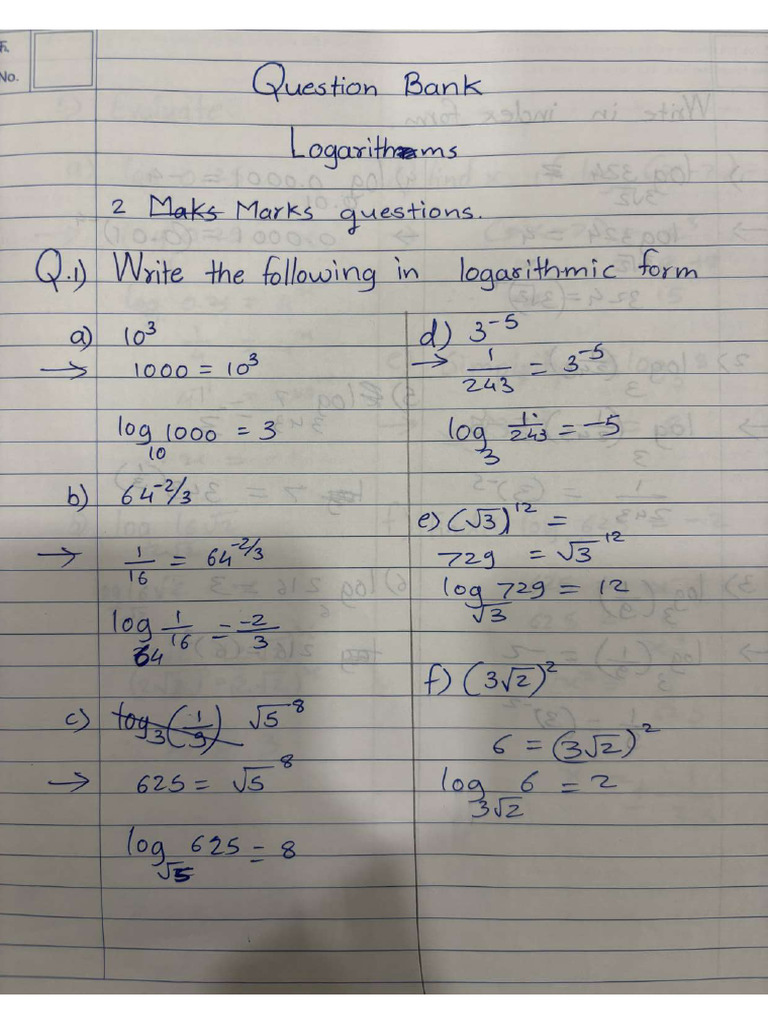 No.
Question Bank
Logarithms
2 Maks Marks questions.
Q.1) Write the following in logarithmic form
a) 10³
→ 1000 = 10³
log₁₀ 1000 = 3
b) 64^-2/3
→ 1/16 = 64^-2/3
log₆₄ 1/16 = -2/3
c) log₃(1/9) √5^8
→ 625 = √5^8
log_√5 625 = 8
d) 3^-5
→ 1/243 = 3^-5
log₃ 1/243 = -5
e) (√3)^12 =
729 = √3^12
log_√3 729 = 12
f) (3√2)²
6 = (3√2)²
log_3√2 6 = 2